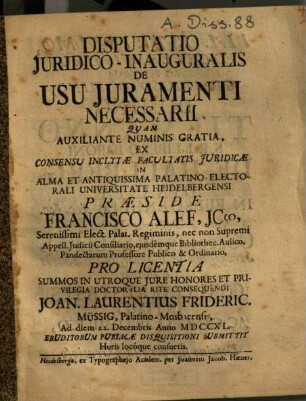 A. Diss. 88
DISPUTATIO
JURIDICO-INAUGURALIS
DE
USU JURAMENTI
NECESSARII
QUAM
AUXILIANTE NUMINIS GRATIA,
EX
CONSENSU INCLYTÆ FACULTATIS JURIDICÆ
IN
ALMA ET ANTIQUISSIMA PALATINO-ELECTO-
RALI UNIVERSITATE HEIDELBERGENSI
PRÆSIDE
FRANCISCO ALEF, JCto,
Serenissimi Elect. Palat. Regiminis, nec non Supremi
Appell. Judicii Consiliario, ejusdémque Bibliothec. Aulico,
Pandectarum Professore Publico & Ordinario,
PRO LICENTIA
SUMMOS IN UTROQUE JURE HONORES ET PRI-
VILEGIA DOCTORALIA RITE CONSEQUENDI
JOAN. LAURENTIUS FRIDERIC.
MÜSSIG, Palatino-Mosbacensis,
Ad diem 22. Decembris Anno MDCCXL.
ERUDITORUM PUBLICÆ DISQUISITIONI SUBMITTIT
Horis locóque consuetis.
Heidelbergæ, ex Typographejo Academ. per Joannem Jacob. Hæner.